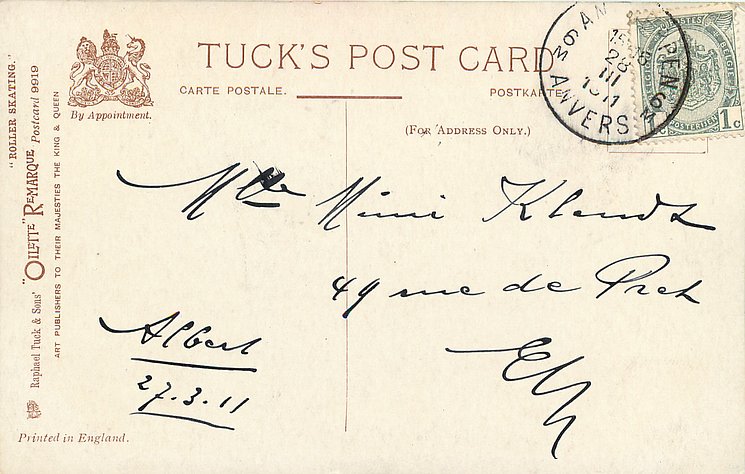 TUCK'S POST CARD
CARTE POSTALE.
POSTKARTE
(FOR ADDRESS ONLY.)
By Appointment.
"ROLLER SKATING."
Raphael Tuck & Sons' "OILETTE" REMARQUE Postcard 9919
ART PUBLISHERS TO THEIR MAJESTIES THE KING & QUEEN
Printed in England.
ANVERS
6 6
28
III
1911
POSTES
1c 1c
Mlle Mimi
49 rue de Pret
Albert
27.3.11